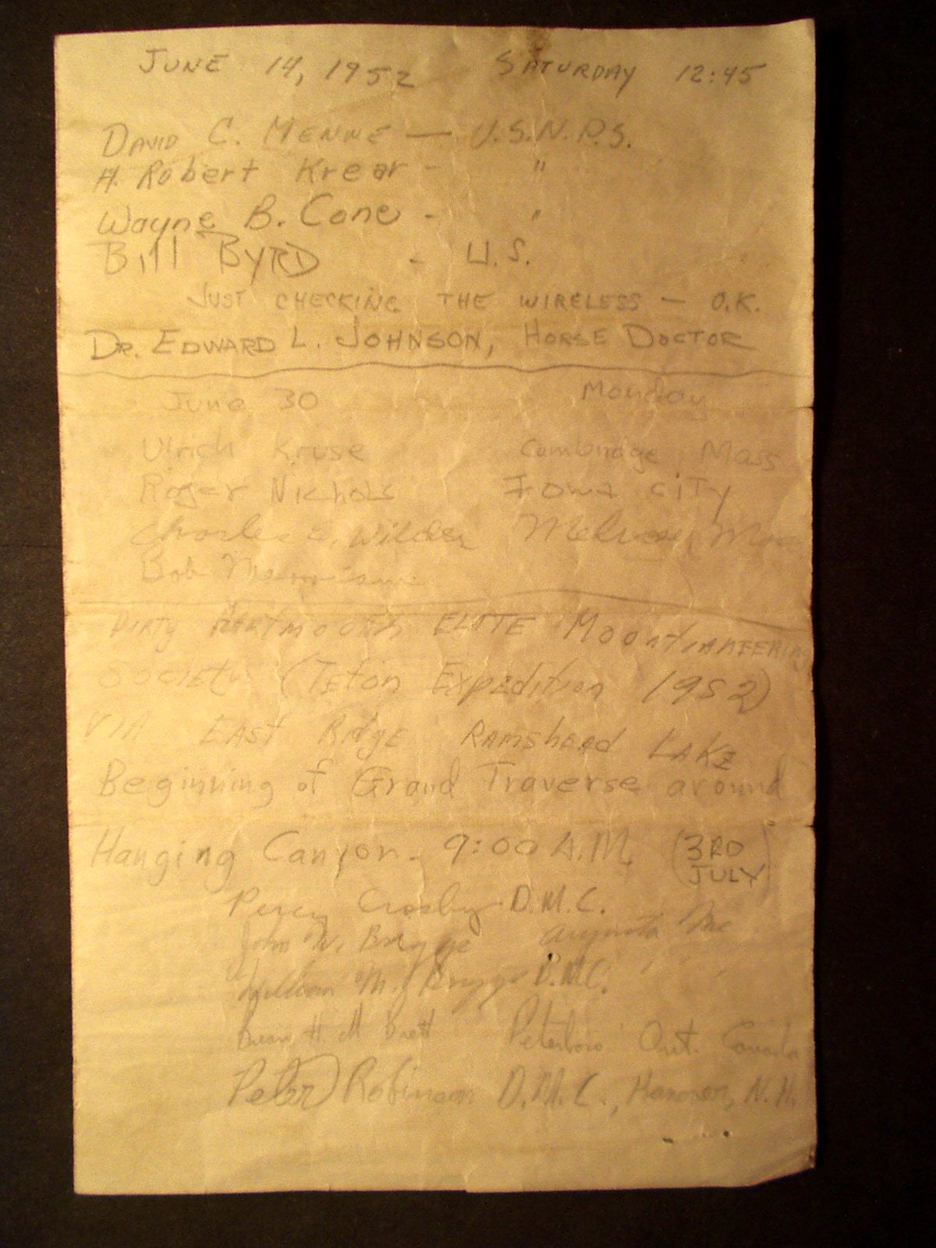 JUNE 14, 1952 SATURDAY 12:45
DAVID C. MENNE — U.S.N.P.S.
H. Robert Krear - "
Wayne B. Cone - "
Bill BYRD - U.S.
JUST CHECKING THE WIRELESS — O.K.
DR. EDWARD L. JOHNSON, HORSE DOCTOR
June 30 Monday
Ulrich Kruse Cambridge Mass
Roger Nichols Iowa City
Charles E. Wilder Melrose, Mass
Bob
DIRTY DARTMOUTH ELITE MOUNTAINEERING
SOCIETY (Teton Expedition 1952)
VIA EAST Ridge RAMSHEAD LAKE
Beginning of Grand Traverse around
Hanging Canyon - 9:00 A.M. (3RD JULY)
Percy Crosby D.M.C.
John W. Briggs Augusta Me
William M. Briggs D.M.C. " "
H. M. Peterboro Ont. Canada
Peter Robinson D.M.C., Hanover, N.H.